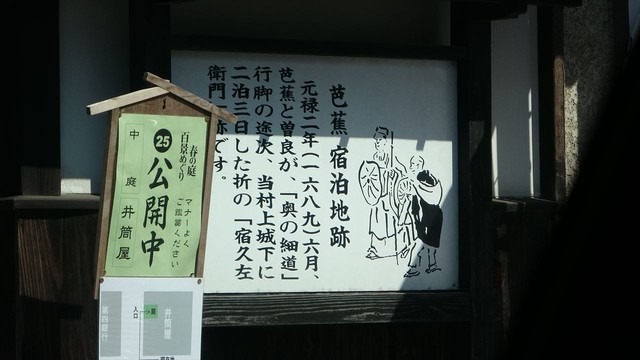 芭蕉宿泊地跡
元禄二年(一六八九)六月、
芭蕉と曽良が、「奥の細道」
行脚の途次、当村上城下に
二泊三日した折の「宿久左
衛門」跡です。
春の庭
百景めぐり
25
公開中
マナーよく
ご鑑賞ください
中庭 井筒屋
井筒屋
入口
第四銀行